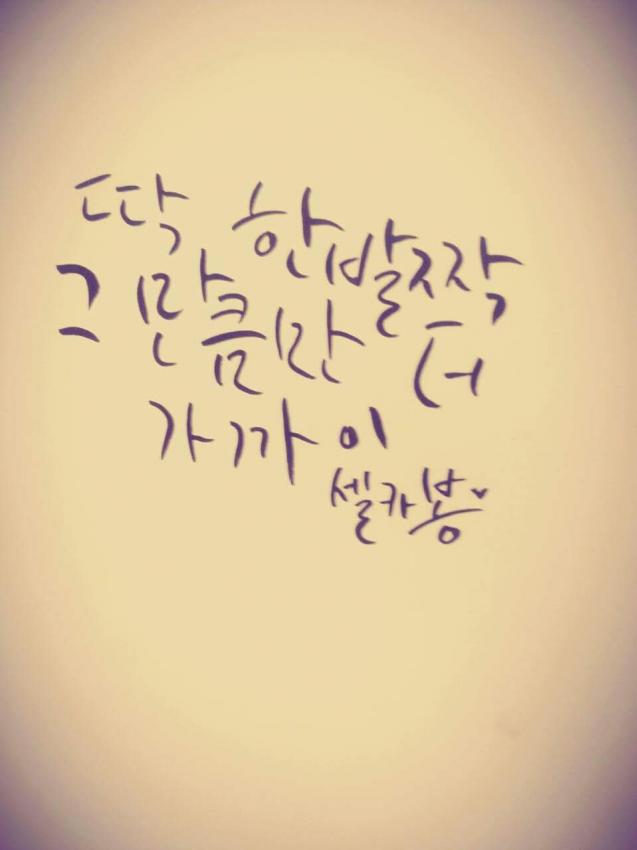 딱 한발자작
그 만큼만 더
가까이
셀카봉